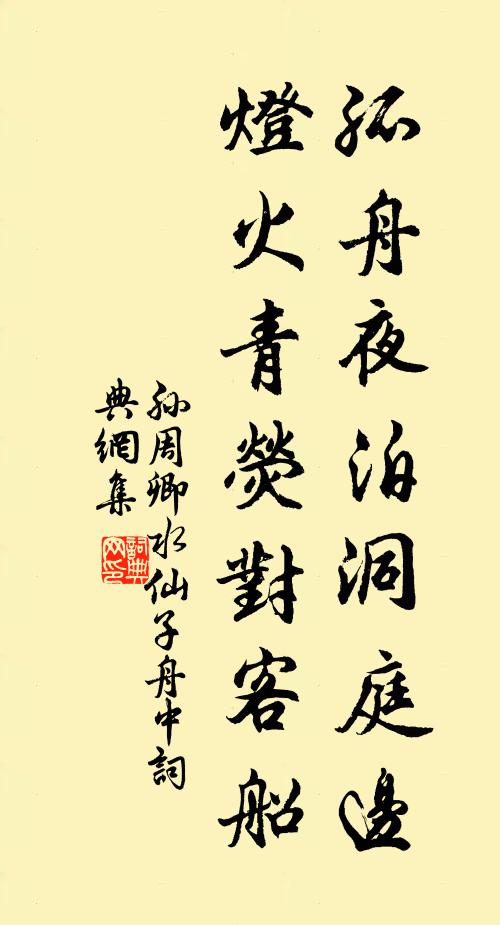 孤舟夜泊洞庭邊
燈火青熒對客船
孫周卿水仙子舟中詞
典網集
詞典
网印